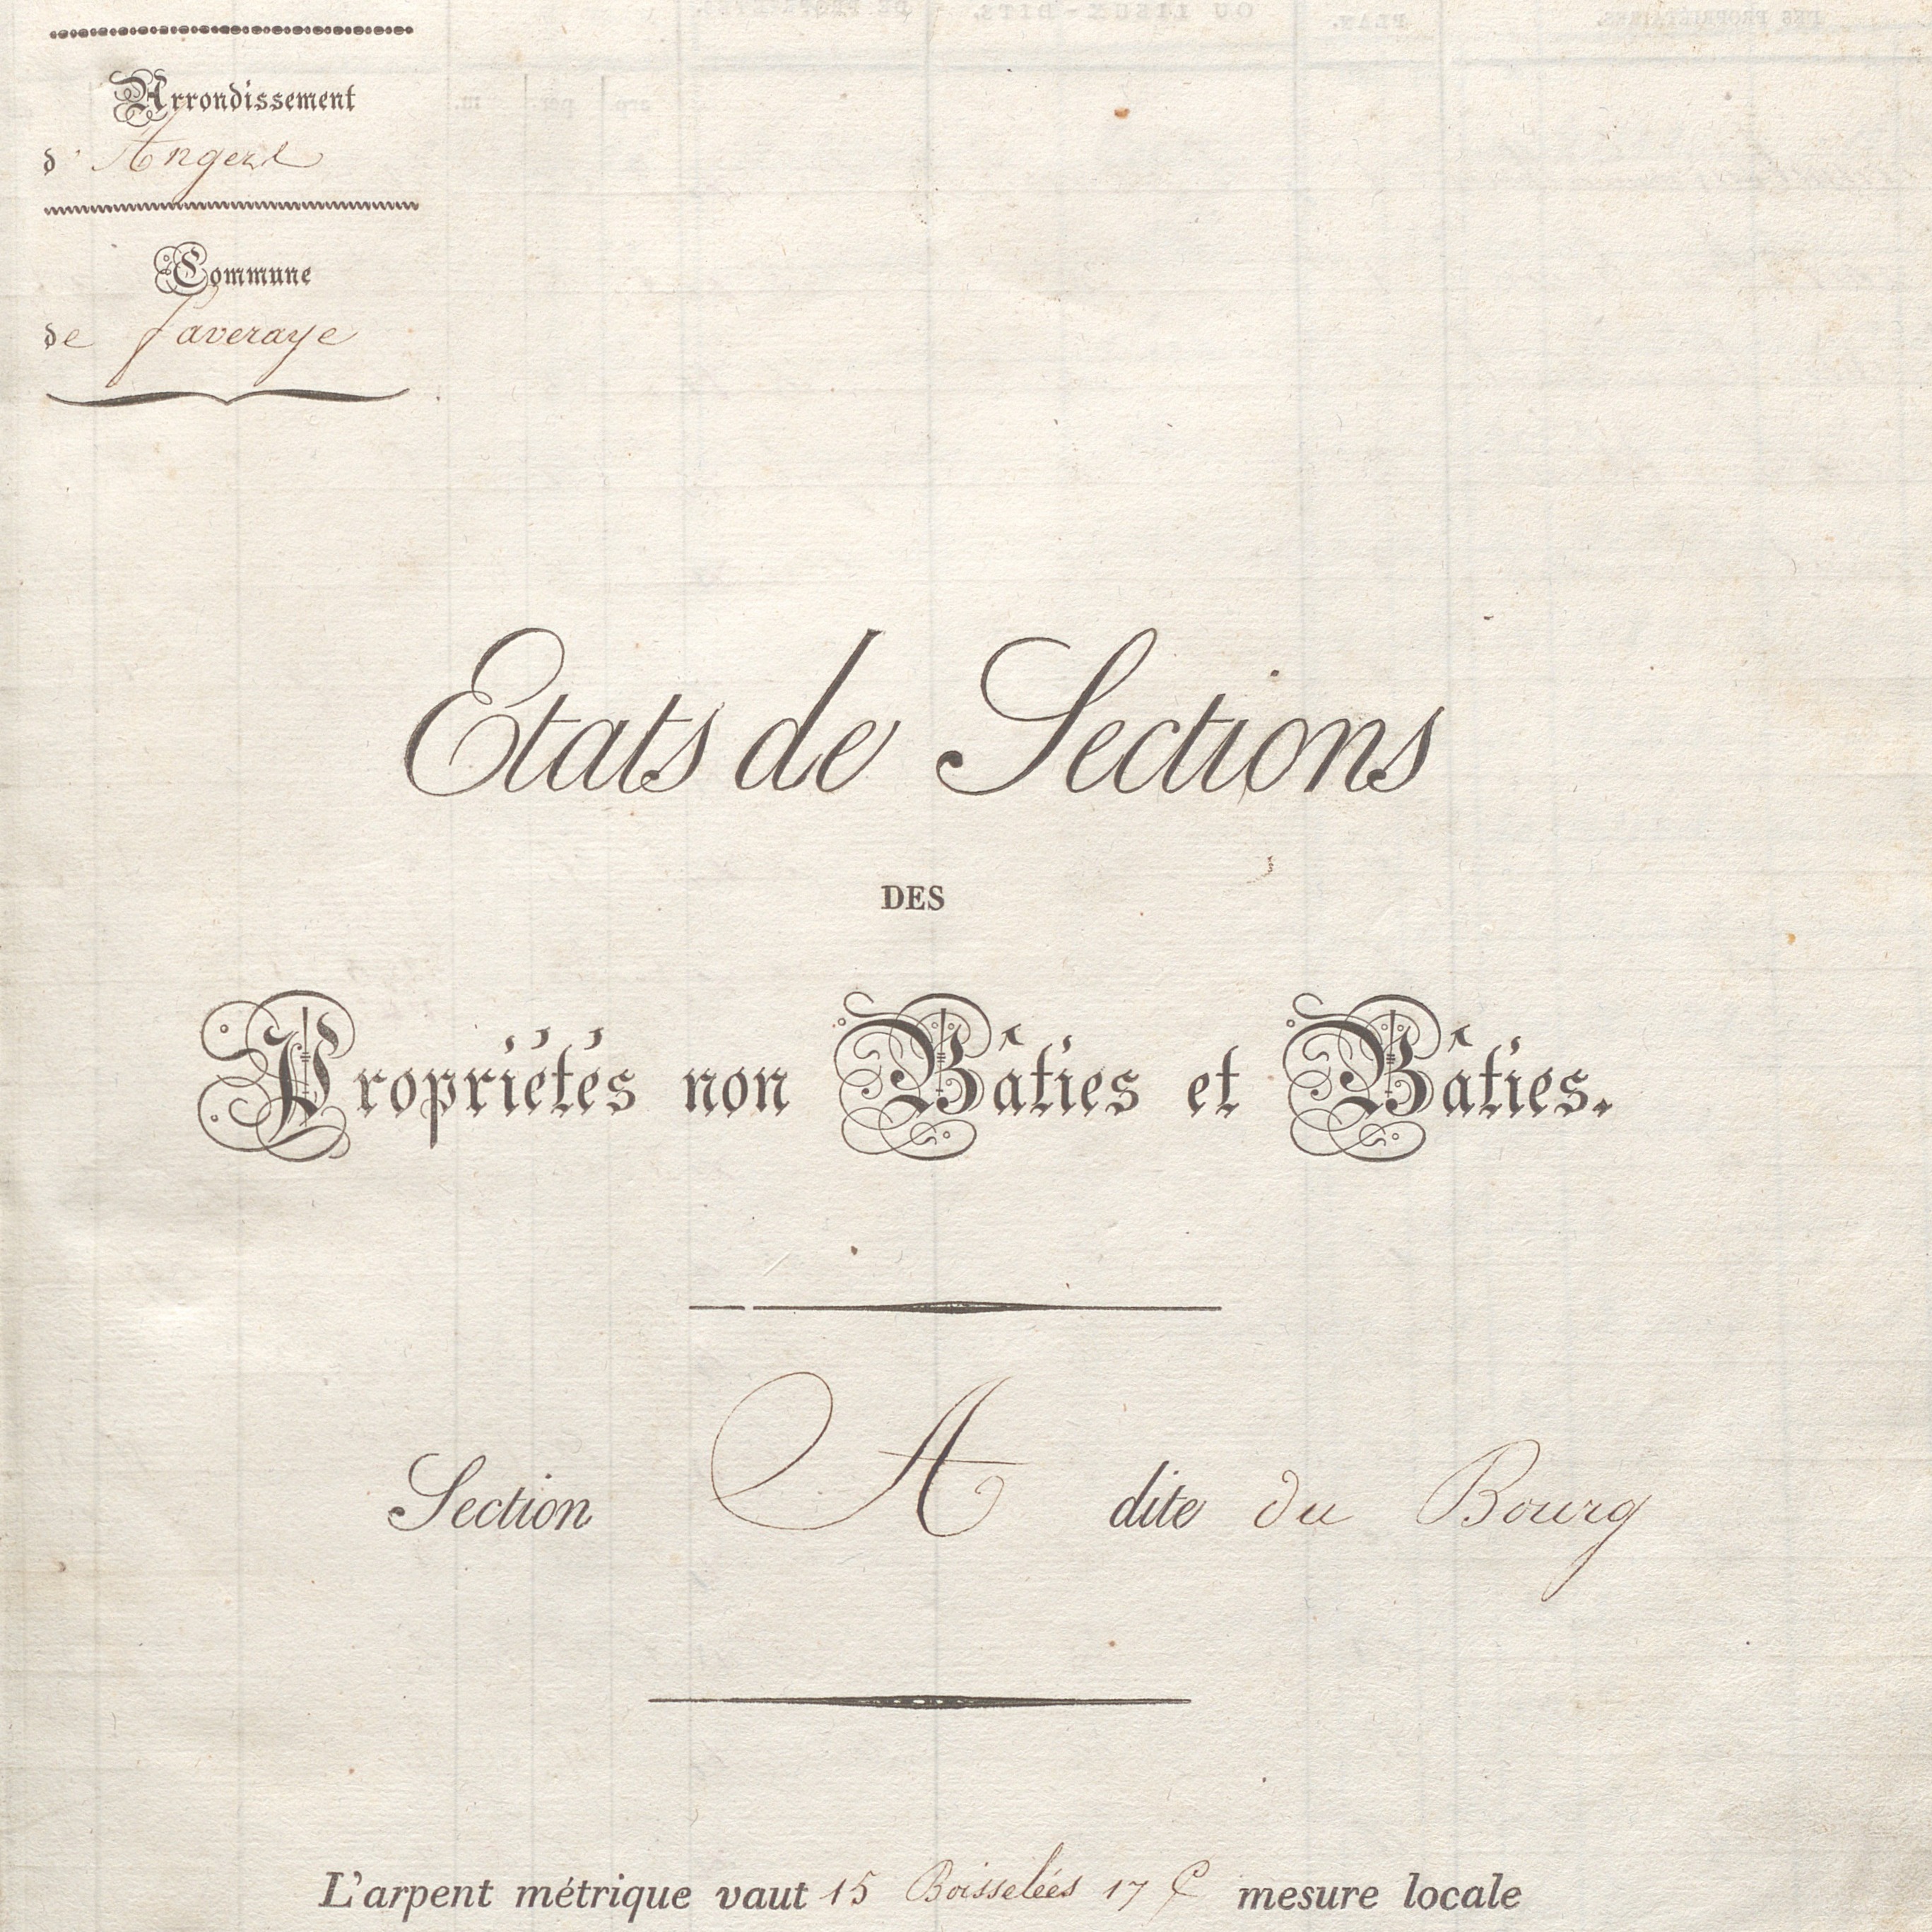 Arrondissement
d'Angers
Commune
de faveraye
Etats de Sections
DES
Propriétés non Bâties et Bâties.
Section A dite du Bourg
L'arpent métrique vaut 15 Boisselées 17 mesure locale